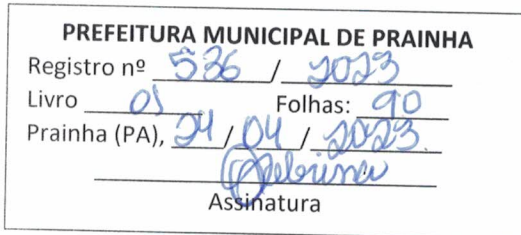 PREFEITURA MUNICIPAL DE PRAINHA
Registro nº 536 / 2023
Livro 01 Folhas: 90
Prainha (PA), 24 / 04 / 2023.
Assinatura